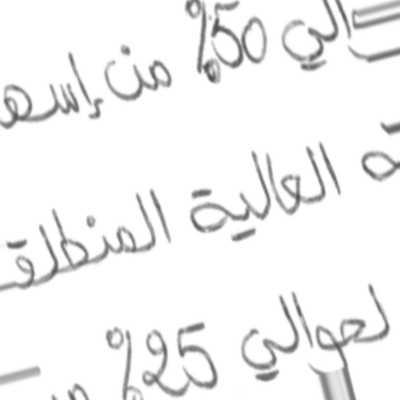 الي 50% من إسه
ة العالية المنطلق
لحوالي 25%